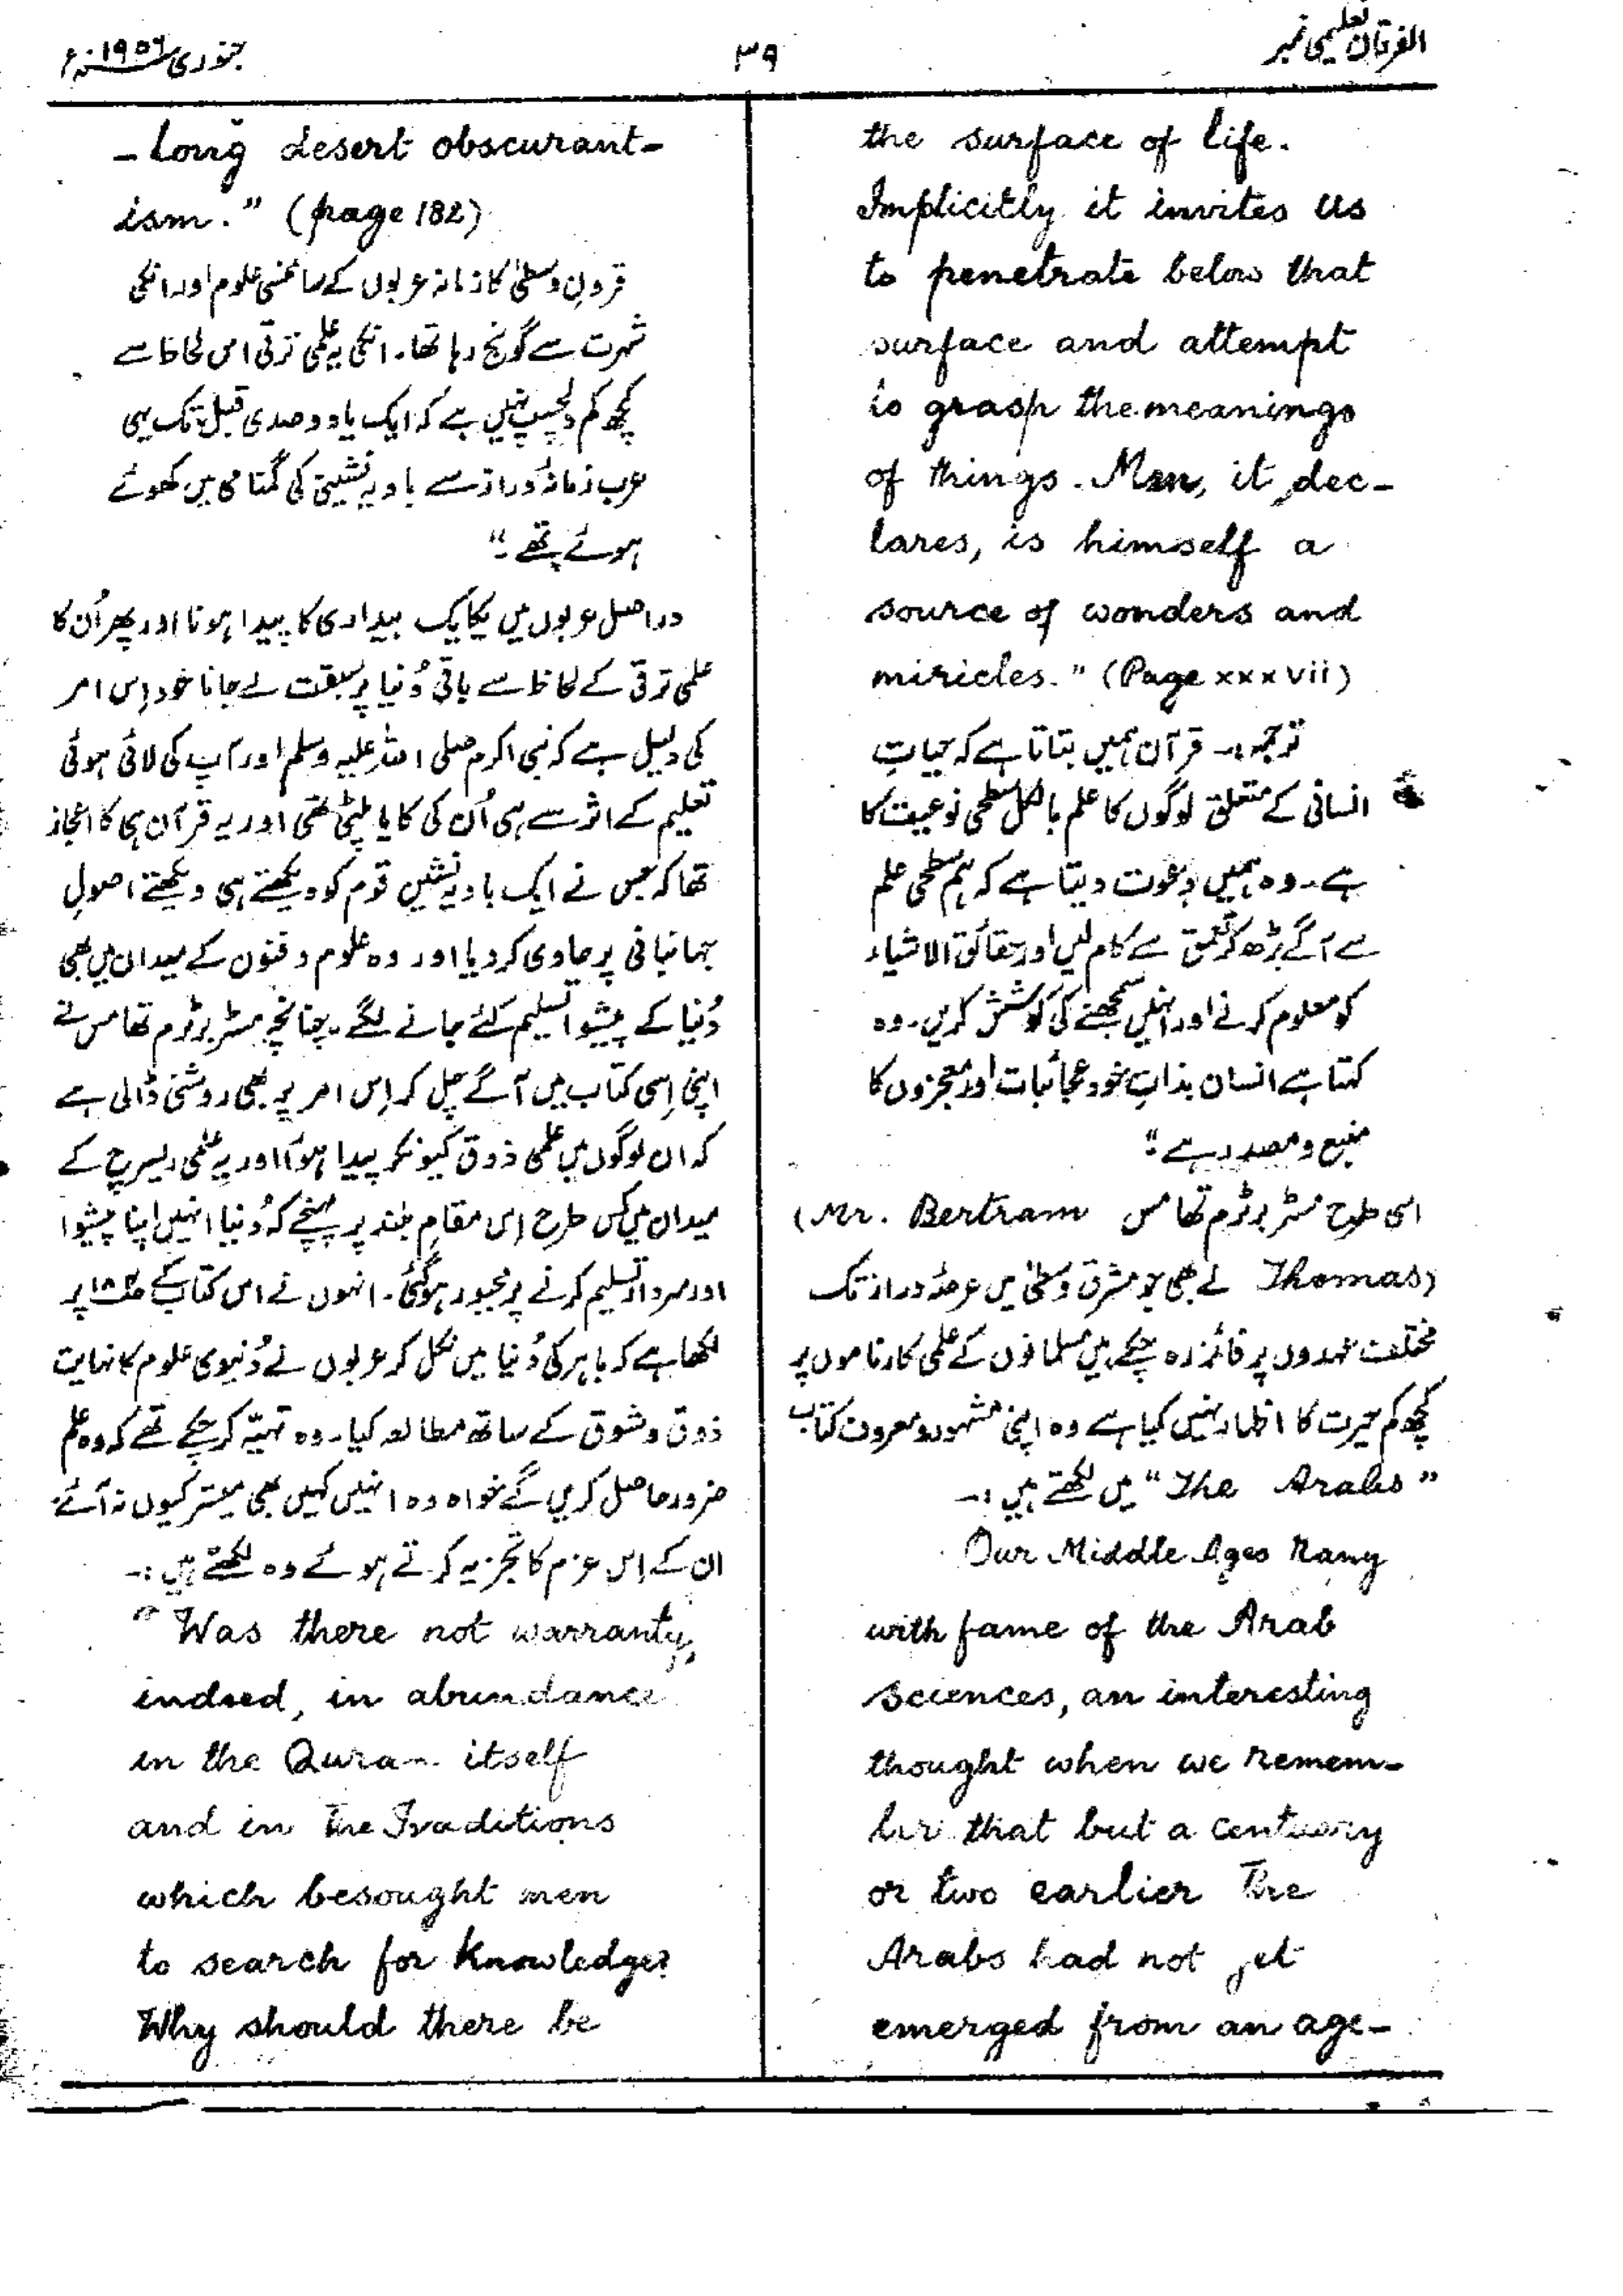 الفرقان تعلیمی نمبر
۳۹
جنوری ۱۹۵۶ء
the surface of life.
Implicitly it invites us
to penetrate below that
surface and attempt
is grasp the meanings
of things. Man, it dec-
lares, is himself a
source of wonders and
miricles." (Page xxxvii)
ترجمہ:۔ قرآن ہمیں بتاتا ہے کہ حیاتِ
انسانی کے متعلق لوگوں کا علم بالکل سطحی نوعیت کا
ہے۔ وہ ہمیں دعوت دیتا ہے کہ ہم سطحی علم
سے آگے بڑھ کر تعمق سے کام لیں اور حقائق الاشیاء
کو معلوم کرنے اور انہیں سمجھنے کی کوشش کریں۔ وہ
کہتا ہے انسان بذاتِ خود عجائبات اور معجزوں کا
منبع و مصدر ہے؛"
اسی طرح مسٹر برٹرم تھامس (Mr. Bertram
Thomas) نے بھی جو مشرقِ وسطیٰ میں عرصۂ دراز تک
مختلف عہدوں پر فائز رہ چکے ہیں مسلمانوں کے علمی کارناموں پر
کچھ کم حیرت کا اظہار نہیں کیا ہے وہ اپنی مشہور و معروف کتاب
"The Arabs" میں لکھتے ہیں:۔
Our Middle Ages Rang
with fame of the Arab
sciences, an interesting
thought when we remem-
ber that but a centuary
or two earlier The
Arabs had not yet
emerged from an age-
-Long desert obscurant-
ism." (page 182)
قرونِ وسطیٰ کا زمانہ عربوں کے سائنسی علوم اور انکی
شہرت سے گونج رہا تھا۔ انکی یہ علمی ترقی اس لحاظ سے
کچھ کم دلچسپ نہیں ہے کہ ایک یا دو صدی قبل تک یہی
عرب زمانۂ دراز سے بادیہ نشینی کی گمنامی میں کھوئے
ہوئے تھے۔"
دراصل عربوں میں یکایک بیداری کا پیدا ہونا اور پھر اُن کا
علمی ترقی کے لحاظ سے باقی دُنیا پر سبقت لے جانا خود اِس امر
کی دلیل ہے کہ نبی اکرم صلی اللہ علیہ وسلم اور آپ کی لائی ہوئی
تعلیم کے اثر سے ہی اُن کی کایا پلٹی تھی اور یہ قرآن ہی کا اعجاز
تھا کہ جس نے ایک بادیہ نشین قوم کو دیکھتے ہی دیکھتے اصولِ
جہانبانی پر حاوی کر دیا اور وہ علوم و فنون کے میدان میں بھی
دُنیا کے پیشوا تسلیم کئے جانے لگے۔ چنانچہ مسٹر برٹرم تھامس نے
اپنی اِسی کتاب میں آگے چل کر اِس امر پر بھی روشنی ڈالی ہے
کہ ان لوگوں میں علمی ذوق کیونکر پیدا ہوا اور یہ علمی ریسرچ کے
میدان میں کس طرح اِس مقامِ بلند پر پہنچے کہ دُنیا انہیں اپنا پیشوا
اور سردار تسلیم کرنے پر مجبور ہوگئی۔ انہوں نے اس کتاب کے پر
لکھا ہے کہ باہر کی دُنیا میں نکل کر عربوں نے دُنیوی علوم کا نہایت
ذوق و شوق کے ساتھ مطالعہ کیا۔ وہ تہیّہ کر چکے تھے کہ وہ علم
ضرور حاصل کریں گے خواہ وہ انہیں کہیں بھی میسّر کیوں نہ آئے۔
ان کے اِس عزم کا تجزیہ کرتے ہوئے وہ لکھتے ہیں:۔
"Was there not warranty,
indeed, in abundance
in the Quran itself
and in The Traditions
which besought men
to search for Knowledge?
Why should there be